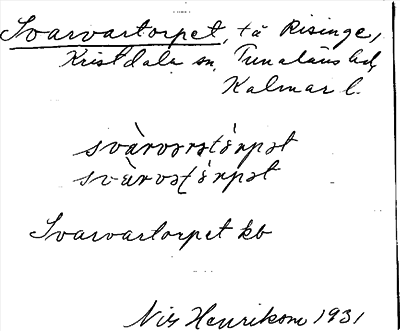 Svarvartorpet, tä Risinge,
Kristdala sn, Tunaläns hd,
Kalmar l.
svàrvarató̀rpət
svàrvató̀rpət
Svarvartorpet kb
Nils Henrikson 1931